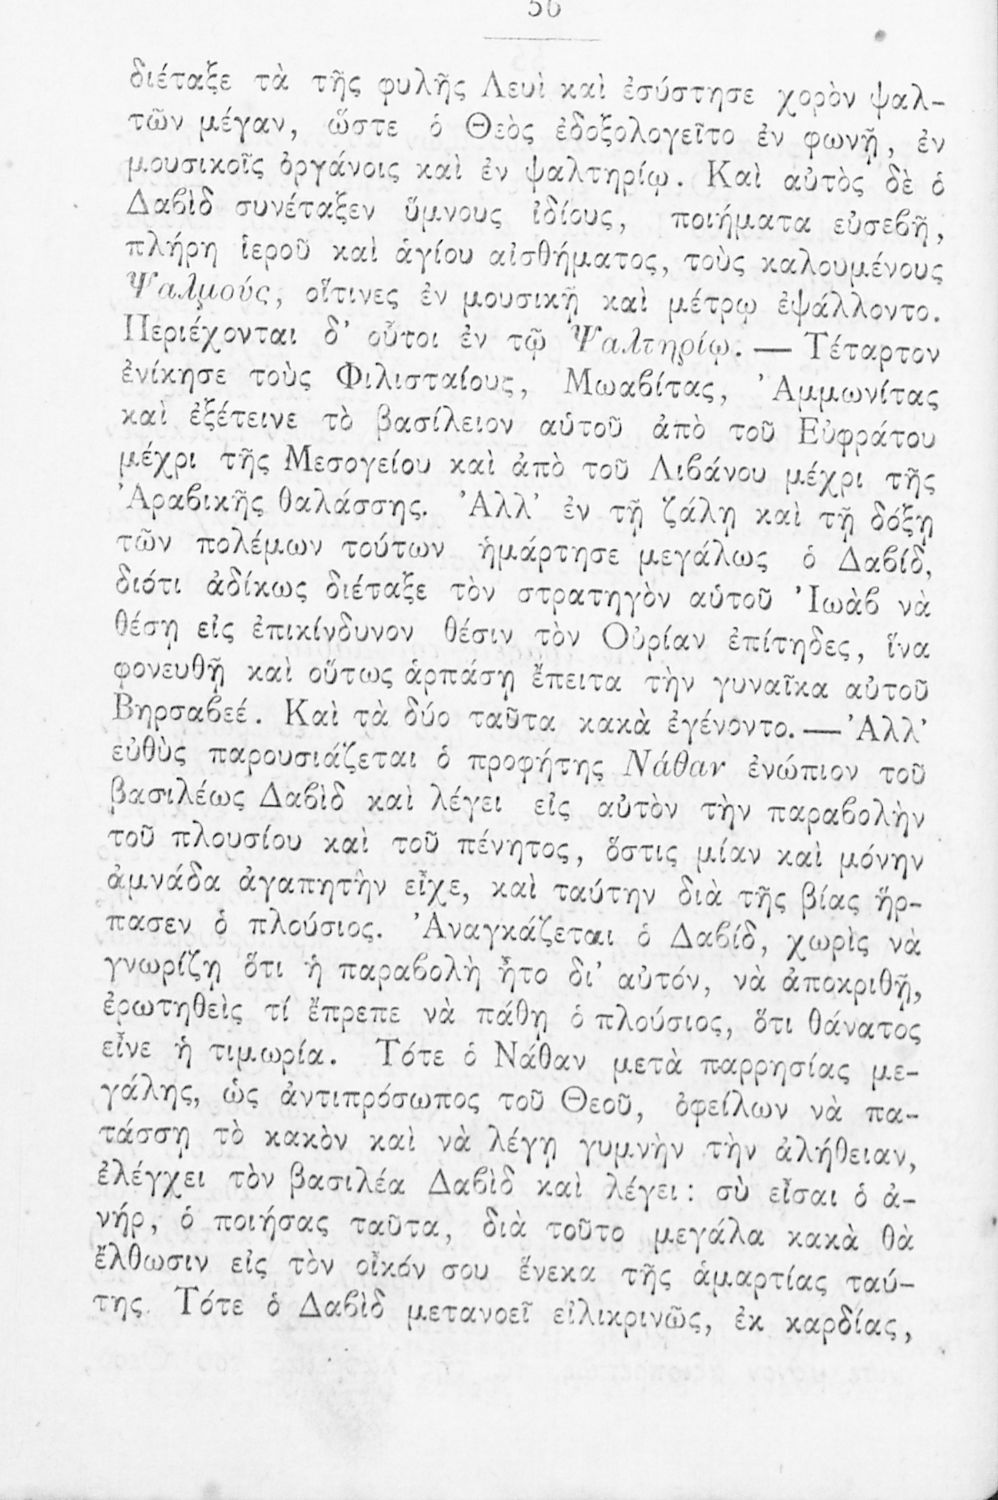 56
διέταξε τὰ τῆς φυλῆς Λευὶ καὶ ἐσύστησε χορὸν ψαλ-
τῶν μέγαν, ὥστε ὁ Θεὸς ἐδοξολογεῖτο ἐν φωνῇ, ἐν
μουσικοῖς ὀργάνοις καὶ ἐν ψαλτηρίῳ. Καὶ αὐτὸς δὲ ὁ
Δαβὶδ συνέταξεν ὕμνους ἰδίους, ποιήματα εὐσεβῆ,
πλήρη ἱεροῦ καὶ ἁγίου αἰσθήματος, τοὺς καλουμένους
Ψαλμούς, οἵτινες ἐν μουσικῇ καὶ μέτρῳ ἐψάλλοντο.
Περιέχονται δ’ οὗτοι ἐν τῷ Ψαλτηρίῳ. — Τέταρτον
ἐνίκησε τοὺς Φιλισταίους, Μωαβίτας, Ἀμμωνίτας
καὶ ἐξέτεινε τὸ βασίλειον αὑτοῦ ἀπὸ τοῦ Εὐφράτου
μέχρι τῆς Μεσογείου καὶ ἀπὸ τοῦ Λιβάνου μέχρι τῆς
Ἀραβικῆς θαλάσσης. Ἀλλ’ ἐν τῇ ζάλῃ καὶ τῇ δόξῃ
τῶν πολέμων τούτων ἡμάρτησε μεγάλως ὁ Δαβίδ,
διότι ἀδίκως διέταξε τὸν στρατηγὸν αὑτοῦ Ἰωὰβ νὰ
θέσῃ εἰς ἐπικίνδυνον θέσιν τὸν Οὐρίαν ἐπίτηδες, ἵνα
φονευθῇ καὶ οὕτως ἁρπάσῃ ἔπειτα τὴν γυναῖκα αὐτοῦ
Βηρσαβεέ. Καὶ τὰ δύο ταῦτα κακὰ ἐγένοντο. — Ἀλλ’
εὐθὺς παρουσιάζεται ὁ προφήτης Νάθαν ἐνώπιον τοῦ
βασιλέως Δαβὶδ καὶ λέγει εἰς αὐτὸν τὴν παραβολὴν
τοῦ πλουσίου καὶ τοῦ πένητος, ὅστις μίαν καὶ μόνην
ἀμνάδα ἀγαπητὴν εἶχε, καὶ ταύτην διὰ τῆς βίας ἥρ-
πασεν ὁ πλούσιος. Ἀναγκάζεται ὁ Δαβίδ, χωρὶς νὰ
γνωρίζῃ ὅτι ἡ παραβολὴ ἦτο δι’ αὐτόν, νὰ ἀποκριθῇ,
ἐρωτηθεὶς τί ἔπρεπε νὰ πάθῃ ὁ πλούσιος, ὅτι θάνατος
εἶνε ἡ τιμωρία. Τότε ὁ Νάθαν μετὰ παρρησίας με-
γάλης, ὡς ἀντιπρόσωπος τοῦ Θεοῦ, ὀφείλων νὰ πα-
τάσσῃ τὸ κακὸν καὶ νὰ λέγῃ γυμνὴν τὴν ἀλήθειαν,
ἐλέγχει τὸν βασιλέα Δαβὶδ καὶ λέγει: σὺ εἶσαι ὁ ἀ-
νήρ, ὁ ποιήσας ταῦτα, διὰ τοῦτο μεγάλα κακὰ θὰ
ἔλθωσιν εἰς τὸν οἶκόν σου ἕνεκα τῆς ἁμαρτίας ταύ-
της. Τότε ὁ Δαβὶδ μετανοεῖ εἰλικρινῶς, ἐκ καρδίας,